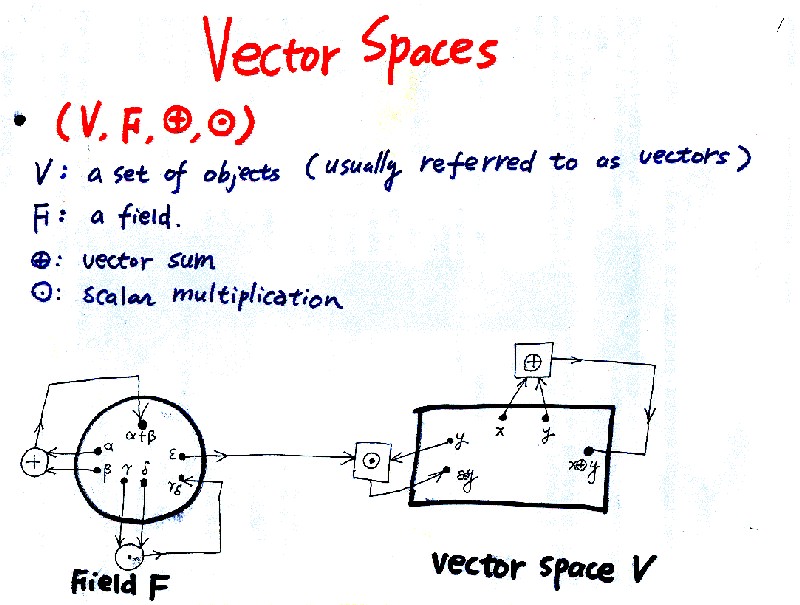 Vector Spaces
• (V, F, ⊕, ⊙)
V: a set of objects (usually referred to as vectors)
F: a field.
⊕: vector sum
⊙: scalar multiplication
⊕
α+β
x y
α ε y
+ ⊙
β γ δ γδ εy x⊕y
·
Field F
vector space V